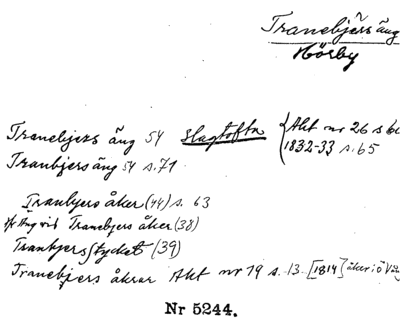 Tranebjers äng
Hörby
Tranebjers äng 54 Slagtofta { Akt nr 26 s 60
Tranbjers äng 54 s. 71 1832-33 s. 65
Tranbjers åker (44) s. 63
Äng vid Tranebjers åker (38)
Tranbjers stycket (39)
Tranebjers åkrar Akt nr 19 s. 13 [1814] åker i Ö
Nr 5244.